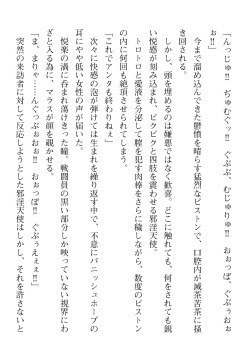 「んっじゅ‼　ぢゅむぐッ‼　ぐぶぷ、むじゅりゅ‼　おおっぷ、ぐぶぉ‼」
　今まで溜め込んできた鬱憤を晴らす猛烈なピストンで、口腔内が滅茶苦茶に掻き回される。
　しかし、頭を埋めるのは嫌悪ではなく歓喜。どこに触れても、何をされても鋭い悦感が刻み込まれ、ビクビクと四肢を震わせる邪淫天使。
　トロトロと愛液を分泌して膣を犯す肉棒をさらに穢しながら、数度のピストンの内に何回も絶頂させられてしまう。
「これでアンタも終わりねぇ」
　次々に快感の泡が弾けては生まれるを繰り返す中で、不意にパニッシュホープの耳にやや低い女性の声が届いた。
　悦楽の渦に呑まれ蕩けきった瞳、戦闘員の黒い部分しか映っていない視界にわざと入る為に、マラスが顔を覗かせる。
「ま、まりゃ……んぐっぷぉぉぉ‼　おぉっぱ‼　ぐぶぅえぇぇ‼」
　突然の来訪者に対して反応しようとした邪淫天使はしかし、それを許さないと